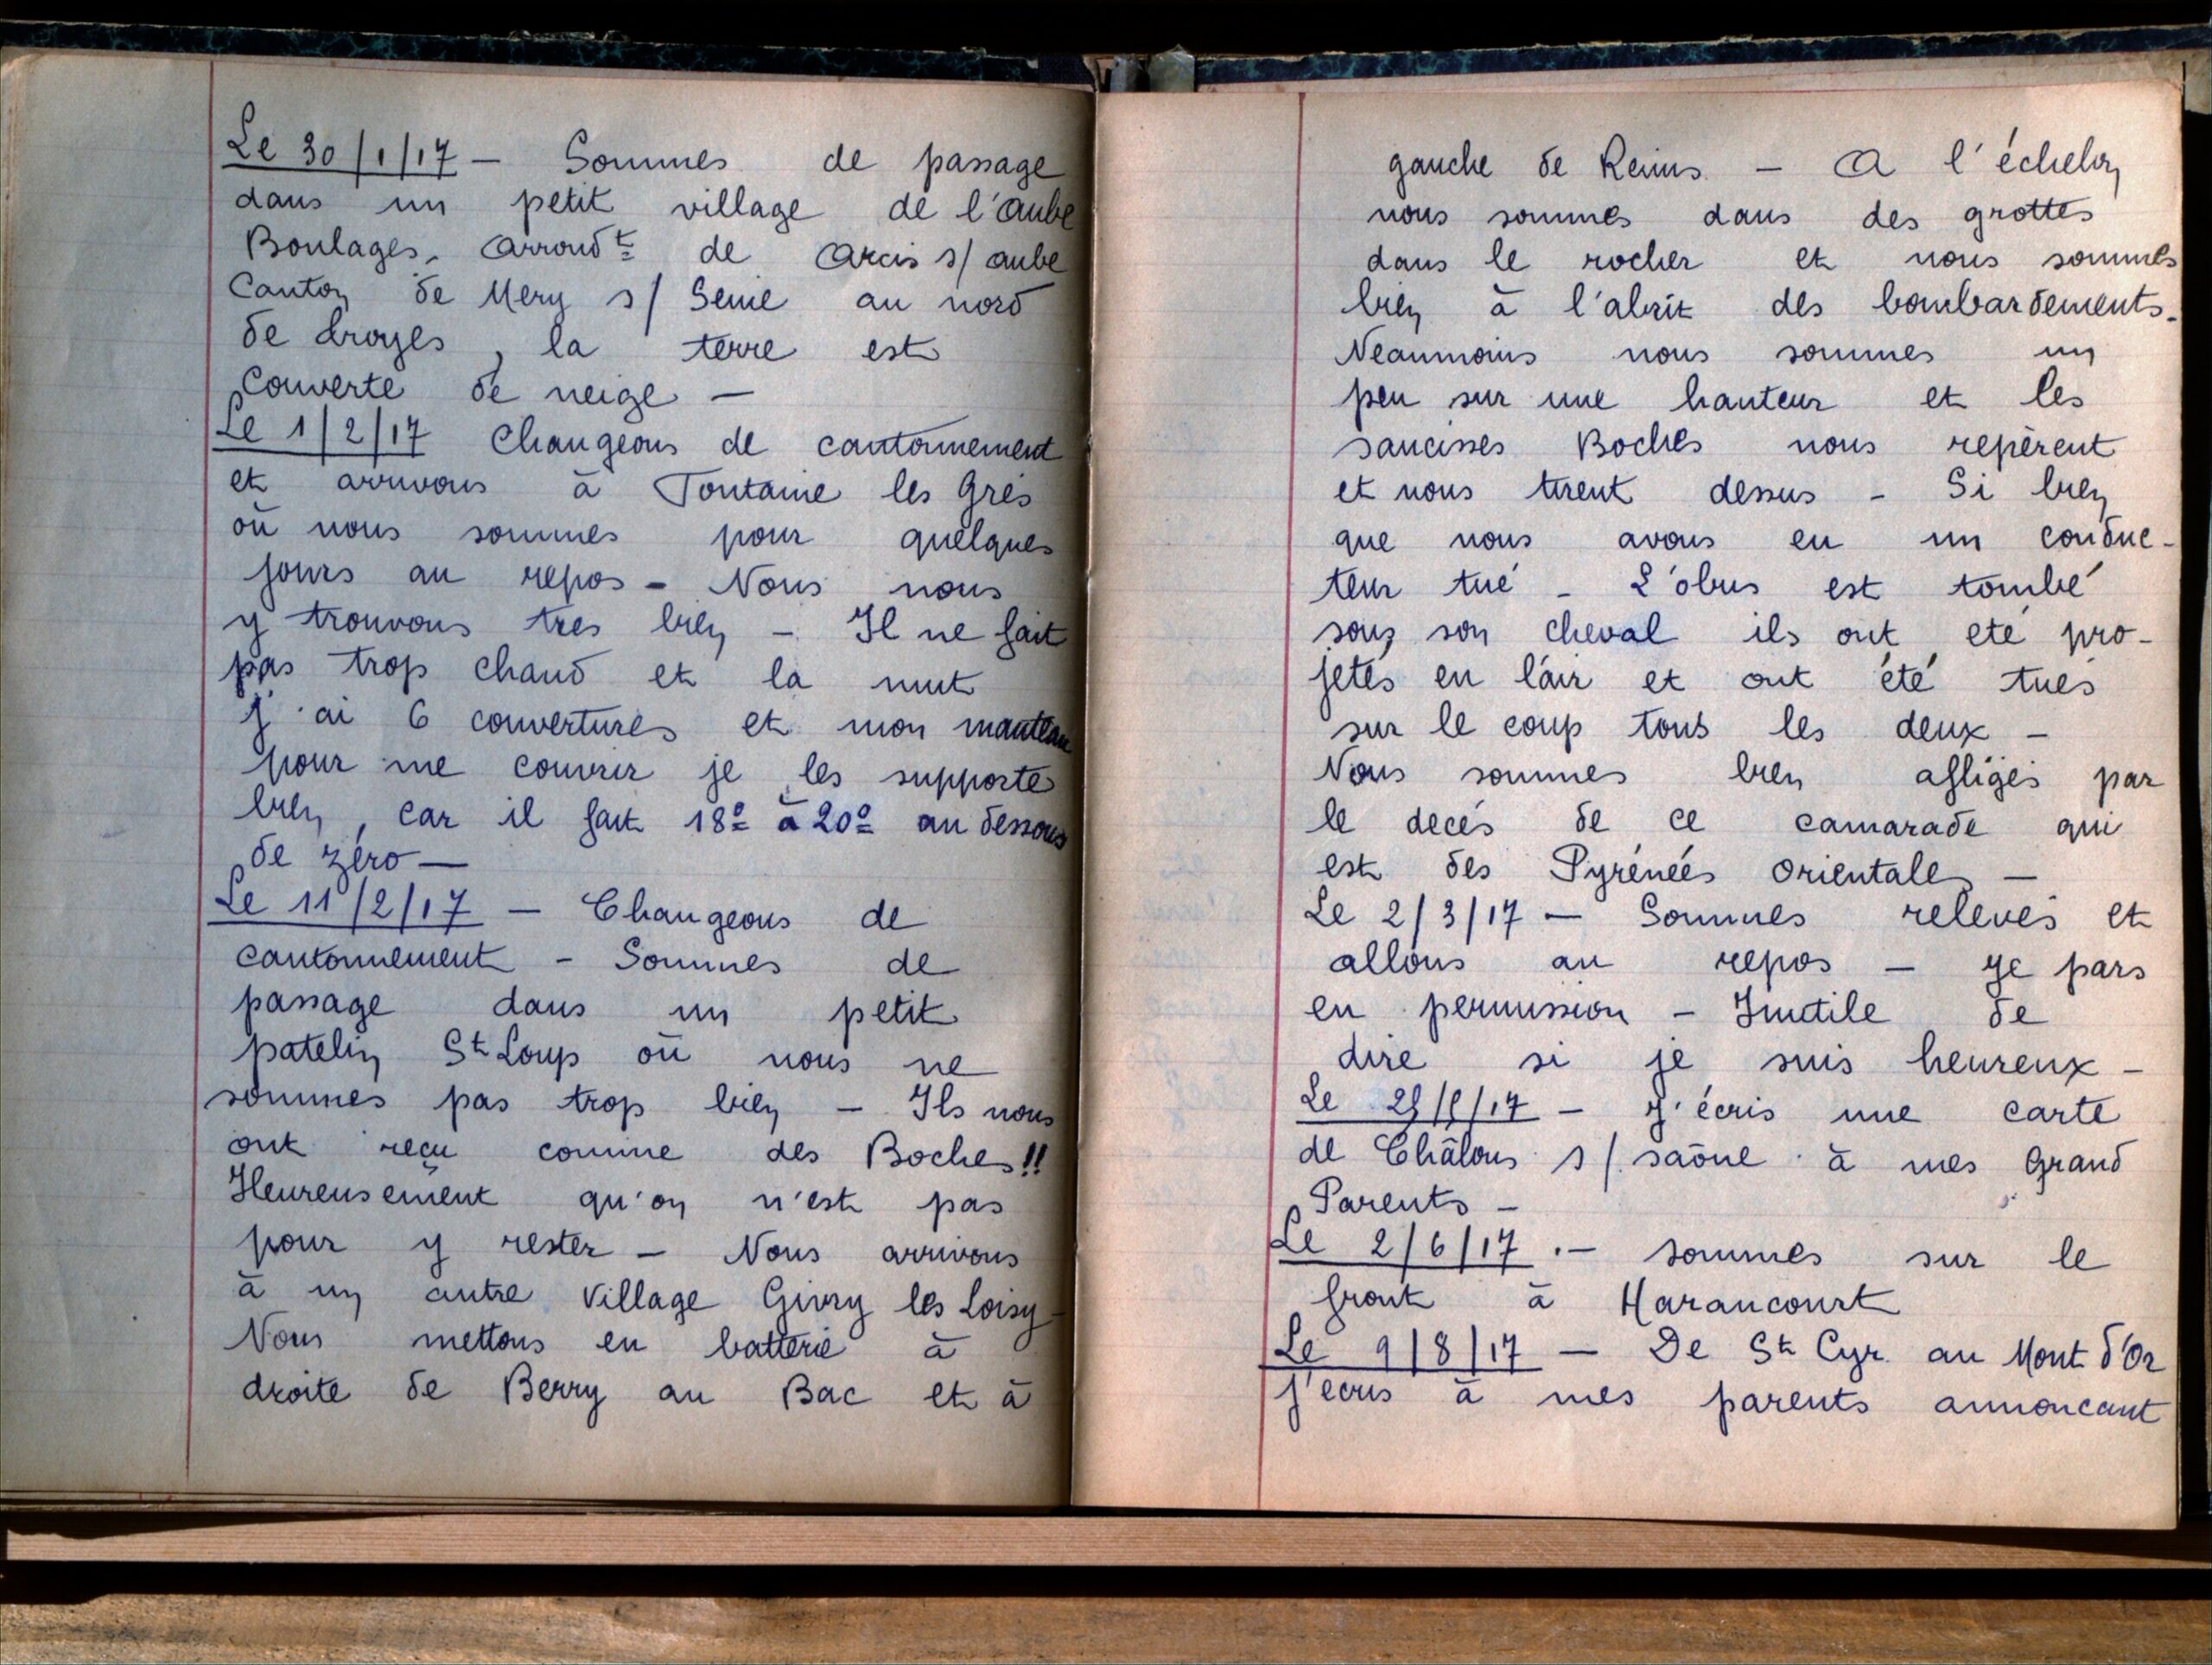 Le 30/1/17 - Sommes de passage
dans un petit village de l'aube
Boulages, Arrondt de Arcis s/ aube
Canton de Mery s/ Seine au nord
de troyes, la terre est
couverte de neige -
Le 1/2/17 Changeons de cantonnement
et arrivons à Fontaine les Grès
où nous sommes pour quelques
jours au repos - Nous nous
y trouvons tres bien - Il ne fait
pas trop chaud et la nuit
j'ai 6 couvertures et mon manteau
pour me couvrir je les supporte
bien, car il fait 18° à 20° au dessous
de zéro -
Le 11/2/17 - Changeons de
cantonnement - Sommes de
passage dans un petit
patelin St Loup où nous ne
sommes pas trop bien - Ils nous
ont reçu comme des Boches!!
Heureusement qu'on n'est pas
pour y rester - Nous arrivons
à un autre village Givry les Loisy -
Nous mettons en batterie à
droite de Berry au Bac et à
gauche de Reims. - A l'échelon
nous sommes dans des grottes
dans le rocher et nous sommes
bien à l'abrit des bombardements.
Neanmoins nous sommes un
peu sur une hauteur et les
saucisses Boches nous repèrent
et nous tirent dessus - Si bien
que nous avons eu un conduc-
teur tué - L'obus est tombé
sous son cheval ils ont eté pro-
jetés en l'air et ont été tués
sur le coup tous les deux -
Nous sommes bien afligés par
le decés de ce camarade qui
est des Pyrénées orientales -
Le 2/3/17 - Sommes relevés et
allons au repos - Je pars
en permission - Inutile de
dire si je suis heureux -
Le - J'écris une carte
de Châlons s/ saône à mes Grand
Parents -
Le 2/6/17 .- sommes sur le
front à Harancourt
Le 9/8/17 - De St Cyr au Mont d'Or
j'ecris à mes parents annoncant